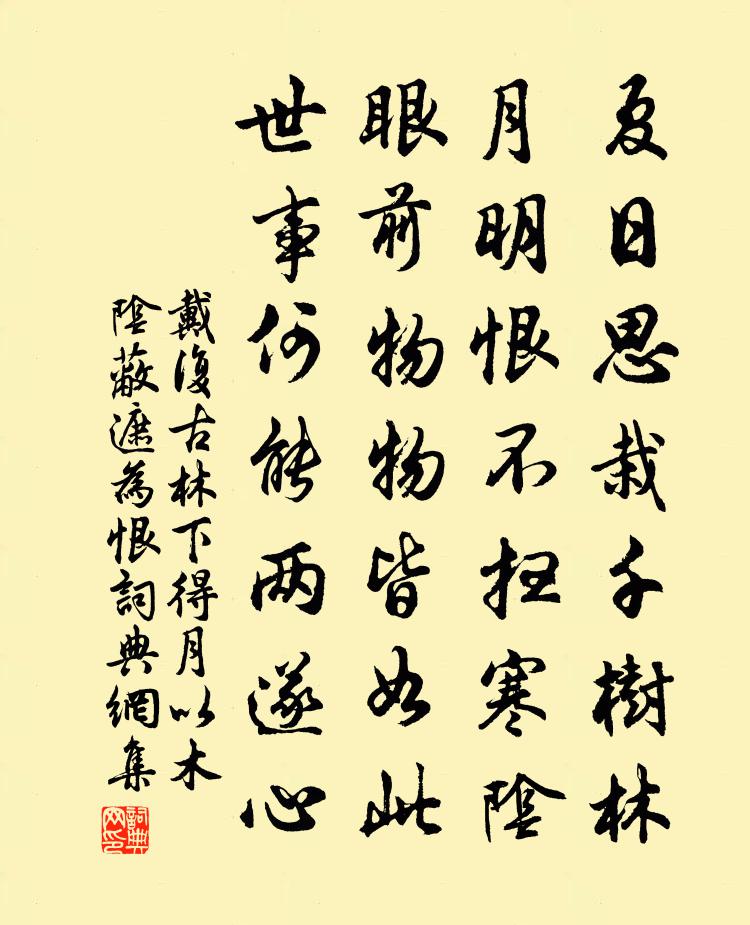 夏日思栽千樹林
月明恨不扫寒陰
眼前物物皆如此
世事何能两遂心
戴復古林下得月以木
陰蔽遮為恨詞典網集
詞典
网印